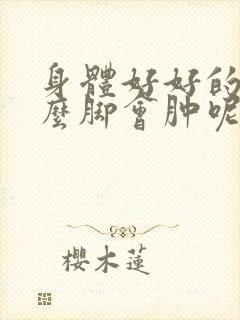 身體好好的
麼脚會肿呢
櫻木蓮